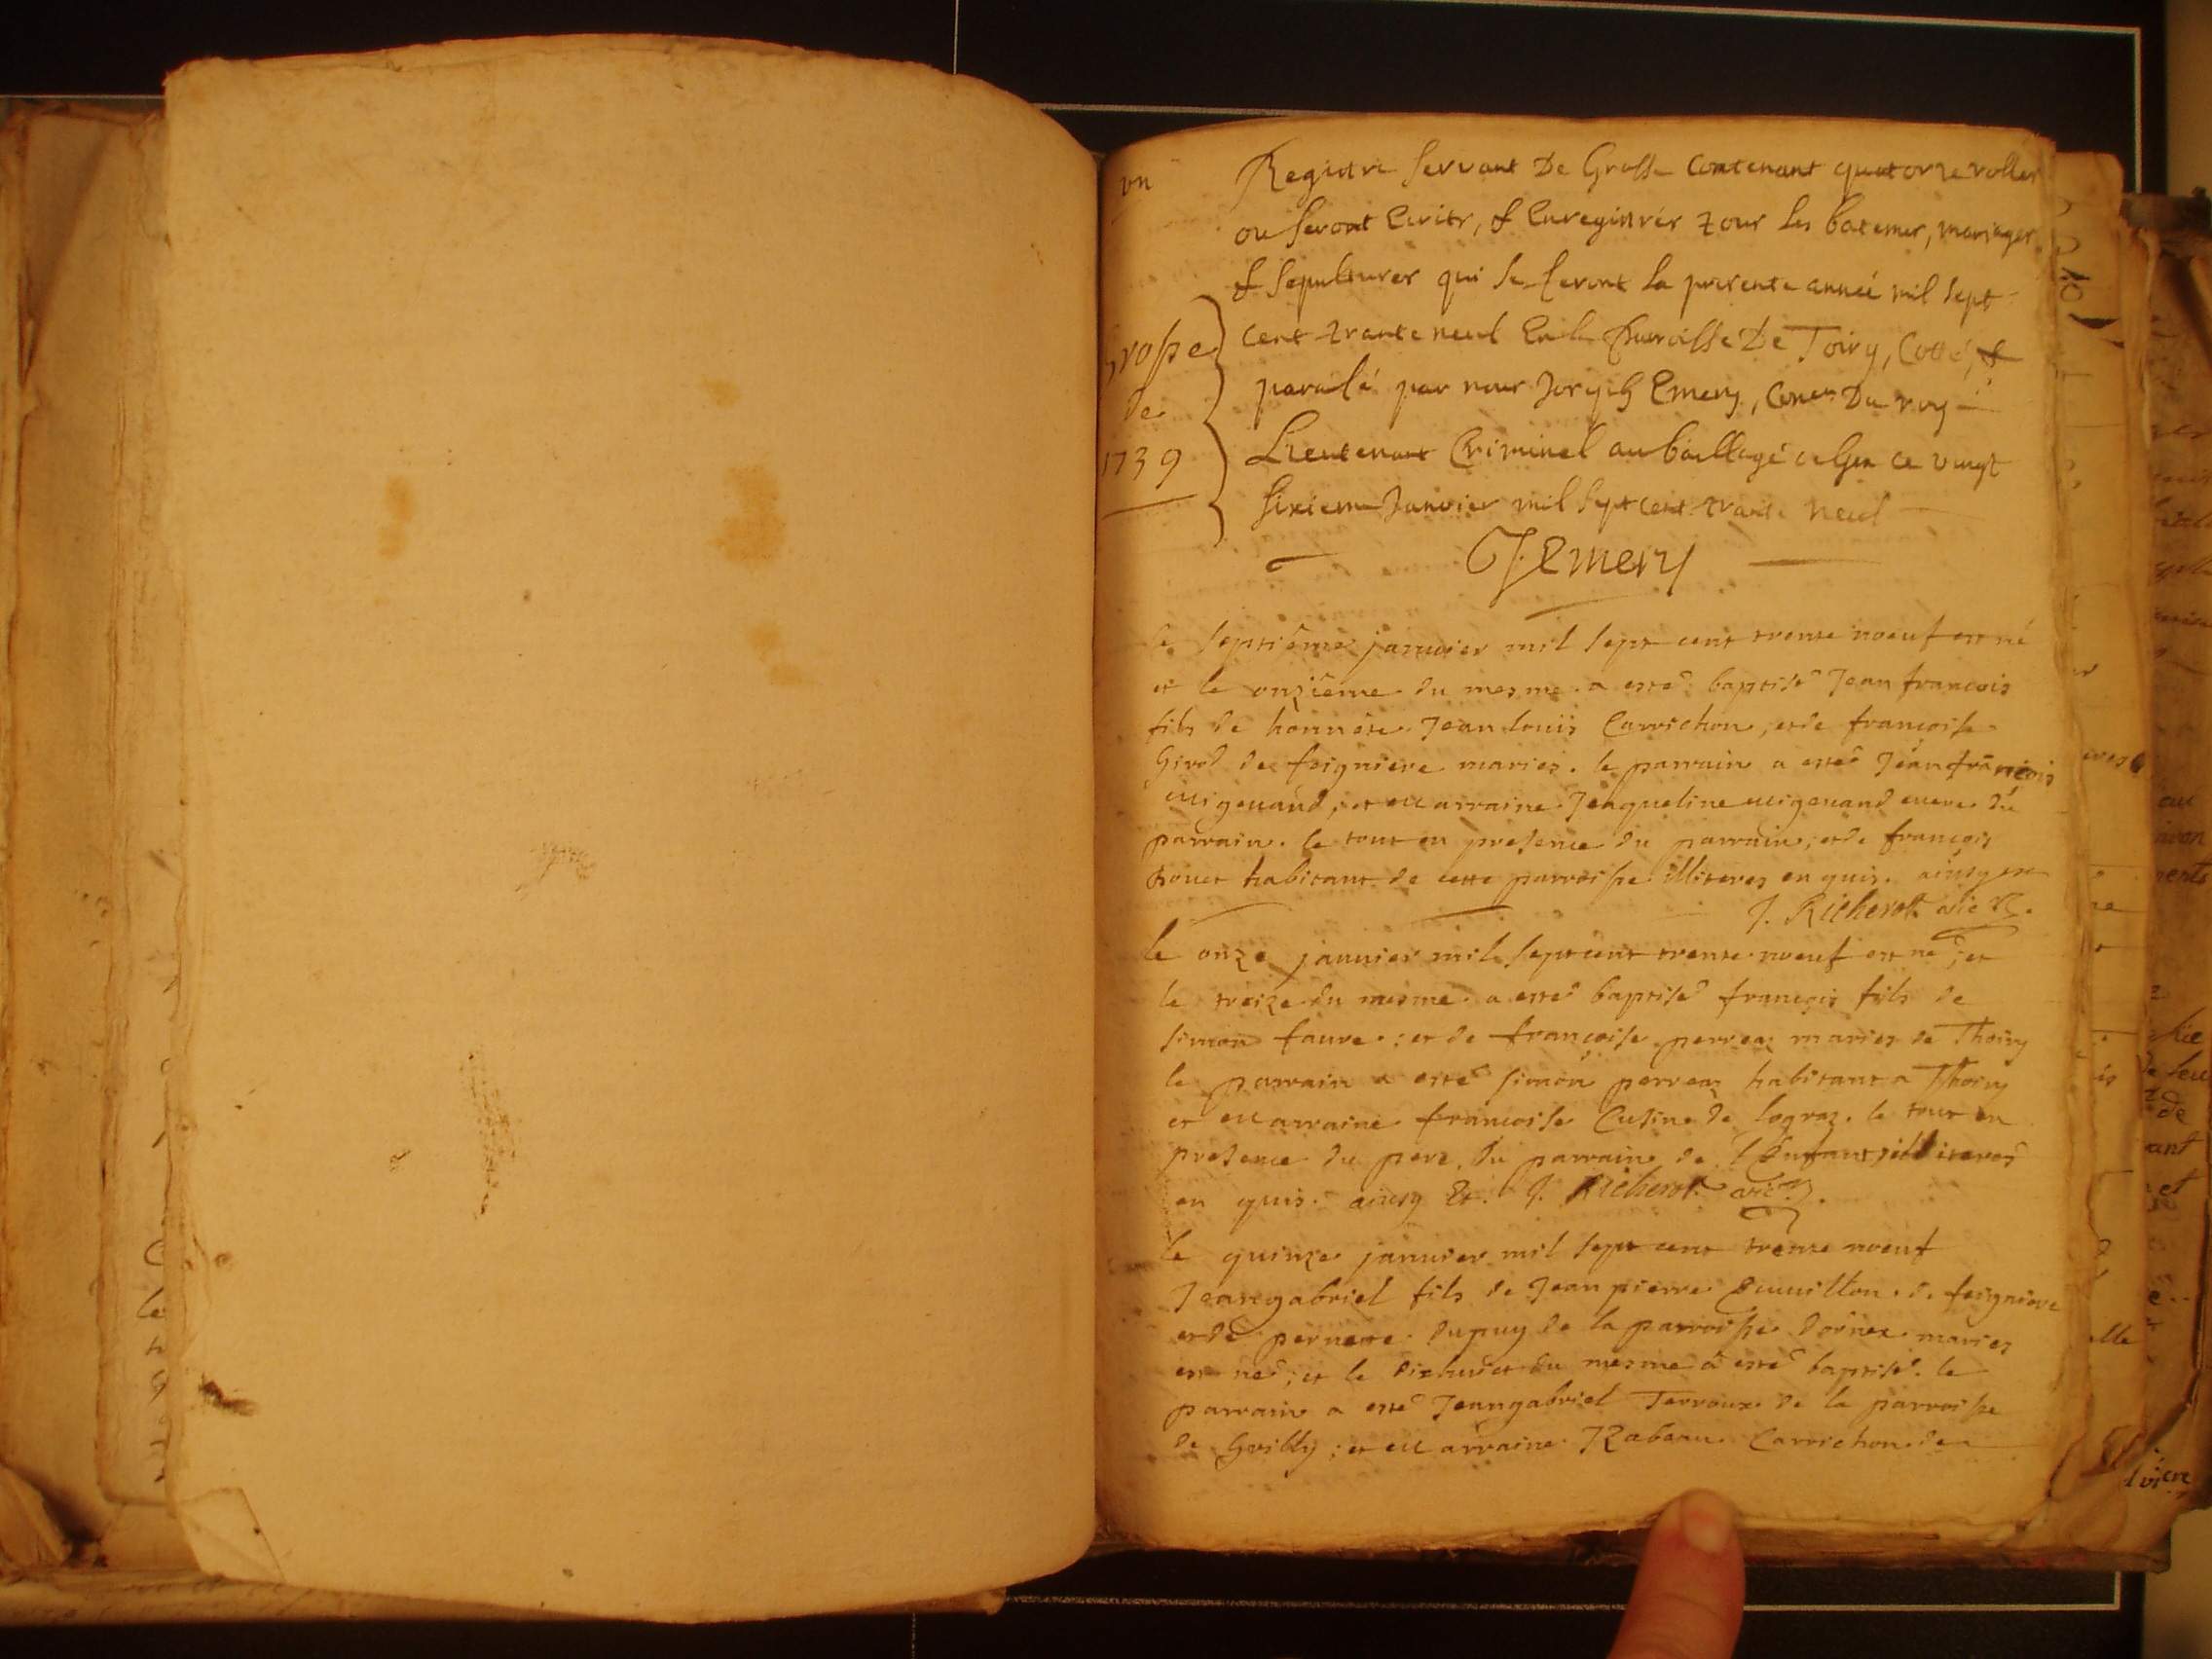 un
Registre servant De Grosse Contenant quatorze rolles
ou seront Ecrits, & Enregistrés tous les batemes, mariages
& sepultures qui se feront la presente année mil sept
cent trante neuf En la Parroisse De Toiry, Cotté, &
parafé par nous Joseph Emery, Coner Du roy
Lieutenant Criminel au bailliage de Gex ce vingt
sixieme Janvier mil sept cent trante neuf
J. Emery
grosse
de
1739
le septiême janvier mil sept cent trente noeuf est né
et le onziême du mesme a esté baptisé Jean francois
fils de honnéte Jean Louis Carrichon, et de françoise
Girod de feigniere mariés. le parrain a esté Jean françois
Migouand, et Marraine Jaqueline Migouand mere du
parrain. le tout en presence du parrain, et de françois
habitant de cette parroisse illiterés en quis. ainsy est
J. Richerot vic.
le onze janvier mil sept cent trente noeuf est né, et
le treize du mesme a esté baptisé françois fils de
simon faure: et de françoise perreaz mariés de Thoiry
le parrain a esté simon perreaz habitant a Thoiry
et Marraine françoise Cusin de lograz. le tout en
presence du pere, du parrain de l'Enfant illiterés
en quis. ainsy Est. J. Richerot vic.
le quinze janvier mil sept cent trente noeuf
Jean gabriel fils de Jean pierre de feigniere
et de pernette dupuy de la parroisse dornex mariés
est né, et le dixhuict du mesme a esté baptisé. le
parrain a esté Jean gabriel Terroux de la parroisse
de Grilly; et Marraine Carrichon de